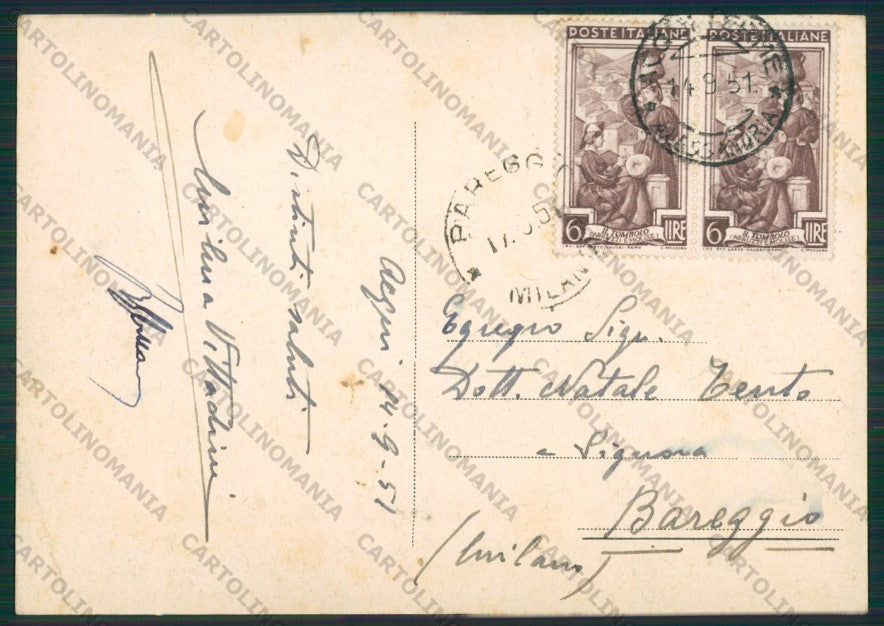 Acqui 14-9-51
Distinti saluti
Vittadini
Egregio Sigr.
Dott. Natale Cento
e Signora
Bareggio
(Milano)
POSTE ITALIANE
POSTE ITALIANE
6 IL TOMBOLO LIRE
6 IL TOMBOLO LIRE
14.9.51
ALESSANDRIA
BAREGGIO
MILANO
CARTOLINOMANIA